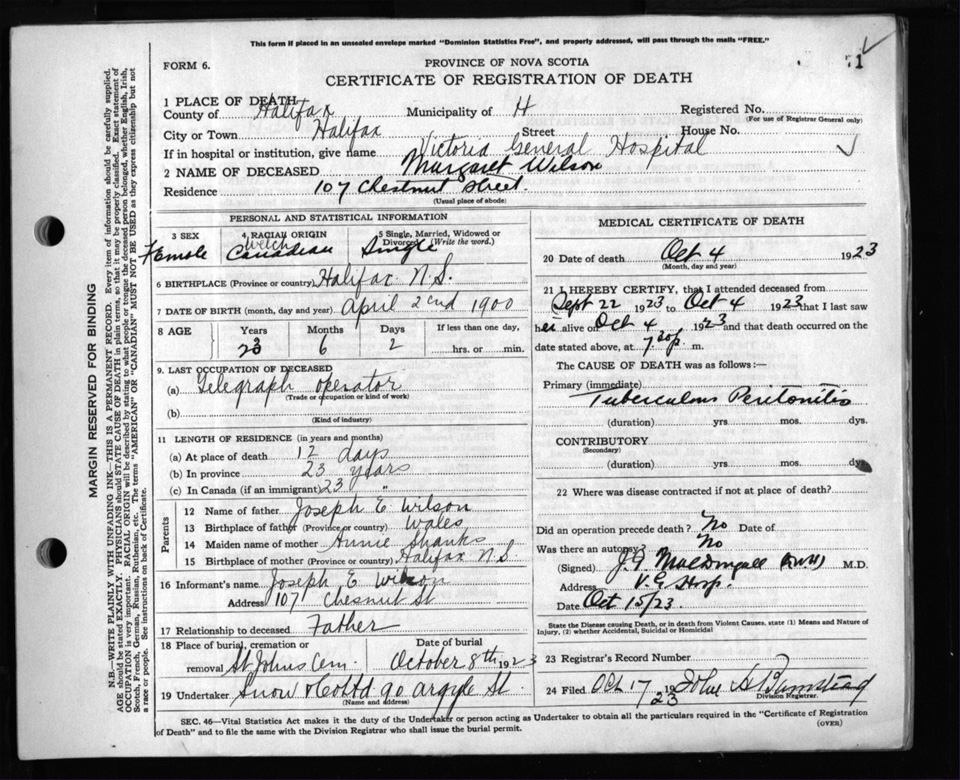 This form if placed in an unsealed envelope marked "Dominion Statistics Free", and properly addressed, will pass through the mails "FREE."
FORM 6.
PROVINCE OF NOVA SCOTIA
71
CERTIFICATE OF REGISTRATION OF DEATH
1 PLACE OF DEATH
County of Halifax Municipality of H Registered No.
(For use of Registrar General only)
City or Town Halifax Street House No.
If in hospital or institution, give name Victoria General Hospital
2 NAME OF DECEASED Margaret Wilson
Residence 107 Chestnut Street.
(Usual place of abode)
PERSONAL AND STATISTICAL INFORMATION
3 SEX 4 RACIAL ORIGIN 5 Single, Married, Widowed or Divorced (Write the word.)
Female Welch Canadian Single
6 BIRTHPLACE (Province or country) Halifax N.S.
7 DATE OF BIRTH (month, day and year) April 2nd 1900
8 AGE Years Months Days If less than one day,
23 6 2 hrs. or min.
9. LAST OCCUPATION OF DECEASED
(a) Telegraph operator
(Trade or occupation or kind of work)
(b)
(Kind of industry)
11 LENGTH OF RESIDENCE (in years and months)
(a) At place of death 12 days
(b) In province 23 years
(c) In Canada (if an immigrant) 23 "
Parents
12 Name of father Joseph E Wilson
13 Birthplace of father (Province or country) Wales
14 Maiden name of mother Annie Shanks
15 Birthplace of mother (Province or country) Halifax N.S.
16 Informant's name Joseph E Wilson
Address 107 Chesnut St
17 Relationship to deceased Father
18 Place of burial, cremation or removal St Johns Cem. Date of burial October 8th 1923
19 Undertaker Snow & Co Ltd 90 Argyle St.
(Name and address)
MEDICAL CERTIFICATE OF DEATH
20 Date of death Oct 4 1923
(Month, day and year)
21 I HEREBY CERTIFY, that I attended deceased from
Sept 22 1923 to Oct 4 1923 that I last saw
her alive on Oct 4 1923 and that death occurred on the
date stated above, at 7 30 p. m.
The CAUSE OF DEATH was as follows:—
Primary (immediate) Tuberculous Peritonitis
(duration) yrs. mos. dys.
CONTRIBUTORY
(Secondary)
(duration) yrs. mos. dys.
22 Where was disease contracted if not at place of death?
Did an operation precede death? No Date of
Was there an autopsy? No
(Signed) MacDougall M.D.
Address V. G. Hosp.
Date Oct 15/23.
State the Disease causing Death, or in death from Violent Causes, state (1) Means and Nature of
Injury, (2) whether Accidental, Suicidal or Homicidal
23 Registrar's Record Number
24 Filed Oct 17 1923
Division Registrar.
SEC. 46—Vital Statistics Act makes it the duty of the Undertaker or person acting as Undertaker to obtain all the particulars required in the "Certificate of Registration
of Death" and to file the same with the Division Registrar who shall issue the burial permit.
(OVER)
MARGIN RESERVED FOR BINDING
N.B.—WRITE PLAINLY WITH UNFADING INK—THIS IS A PERMANENT RECORD. Every item of information should be carefully supplied.
AGE should be stated EXACTLY. PHYSICIANS should STATE CAUSE OF DEATH in plain terms, so that it may be properly classified. Exact statement of
OCCUPATION is very important. RACIAL ORIGIN will be described by stating to what people or tongue the deceased person belonged, whether English, Irish,
Scotch, French, German, Russian, Ruthenian, etc. The terms "AMERICAN" OR "CANADIAN" MUST NOT BE USED as they express citizenship but not
a race or people. See instructions on back of Certificate.